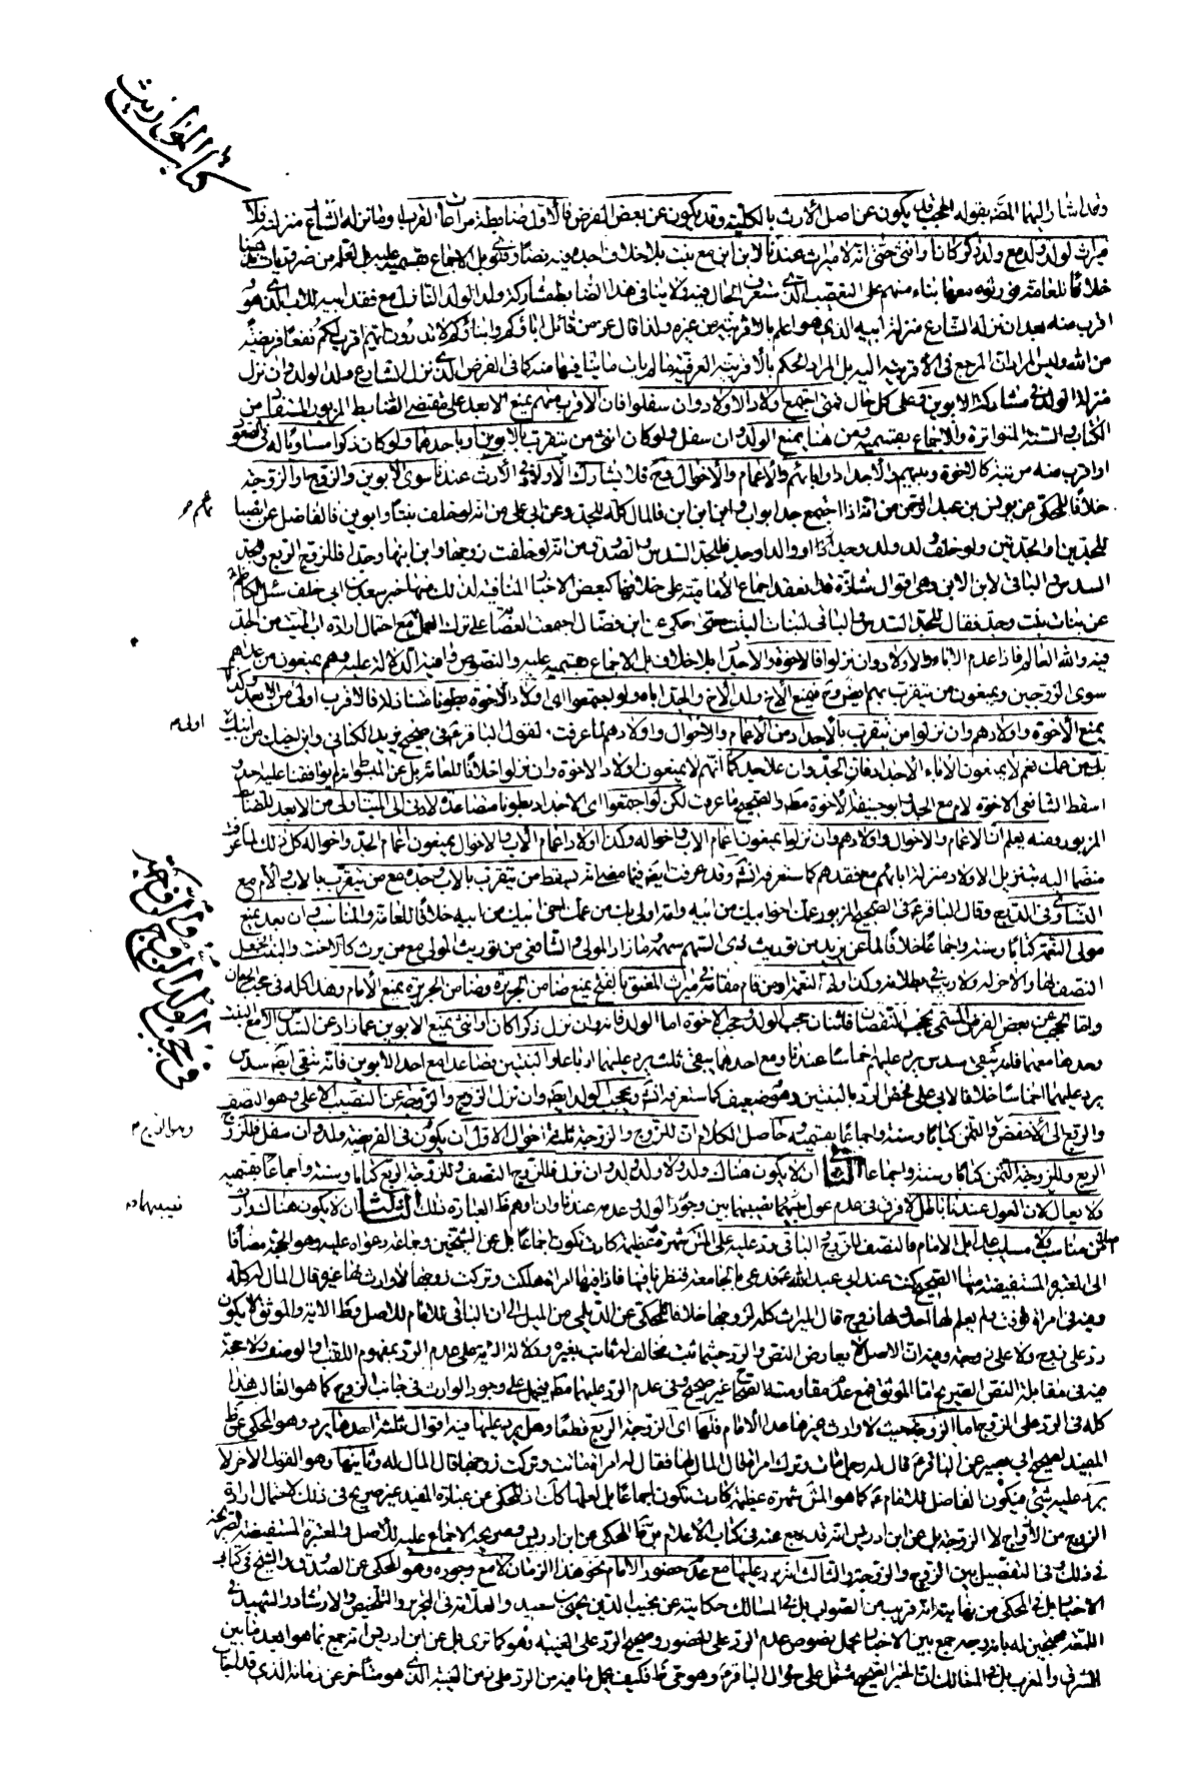 كتاب المواريث
وقد اشار اليهما المصنف بقوله الحجب قد يكون عن اصل الارث بالكلية وقد يكون عن بعض الفرض فالاول ضابطه مراعات القرب او ما نزله الشارع منزلته فلا
ميراث لولد ولد مع ولد ذكرا كان او انثى حتى انه لا ميراث عندنا لابن ابن مع بنت بلا خلاف اجده فيه نصا وفتوى بل الاجماع بقسميه عليه بل لعله من ضروريات مذهبنا
خلافا للعامة فورثوه معها بناء منهم على التعصيب الذي ستعرف الحال فيه ولا ينافي هذا الضابط مشاركة ولد الولد النازل مع فقد ابيه للاب الذي هو
اقرب منه بعد ان نزله الشارع منزلة ابيه الذي هو اعلم بالاقربية من غيره ولذا قال عز من قائل اباؤكم وابناؤكم لا تدرون ايهم اقرب لكم نفعا فريضة
من الله وليس المراد ان المرجع في الاقربية اليه بل المراد الحكم بالاقربية العرفية ما لم يات ما ينافيها منه كما في الفرض الذي نزل الشارع ولد الولد وان نزل
منزلة الولد في مشاركة الابوين وعلى كل حال فمتى اجتمع اولاد الاولاد وان سفلوا فان الاقرب منهم يمنع الابعد على مقتضى الضابط المزبور المستفاد من
الكتاب والسنة المتواترة والاجماع بقسميه ومن هنا يمنع الولد وان سفل ولو كان انثى من يتقرب بالابوين او باحدهما ولو كان ذكرا مساويا له في الصعود
او اقرب منه مرتبة كالاخوة وبنيهم والاجداد وابائهم والاعمام والاخوال وح فلا يشارك الاولاد في الارث عندنا سوى الابوين والزوج او الزوجة
خلافا للمحكي عن يونس بن عبد الرحمن من انه اذا اجتمع جد ابو اب وابن ابن ابن فالمال كله للجد وعن ابي علي من انه لو خلف بنتا وابوين فالفاضل عن انصبائهم
للجدين او الجدتين ولو خلف ولد ولد وجدا او والدا وجدا فللجد السدس والصدوق من انه لو خلفت زوجها وابن ابنها وجدا فللزوج الربع وللجد
السدس والباقي لابن الابن وهي اقوال شاذة قد انعقد اجماع الامامية على خلافها كبعض الاخبار المنافية لذلك منها خبر سعد بن ابي خلف سئل الكاظم
عن بنات بنت وجد فقال للجد السدس والباقي لبنات البنت حتى حكى عن ابن فضال اجمعت العصابة على ترك العمل به مع احتمال ارادة اب الميت من الجد
فيه والله العالم فاذا عدم الاباء والاولاد وان نزلوا فالاخوة والاجداد بلا خلاف بل الاجماع بقسميه عليه والنصوص وافية الدلالة عليه وهم يمنعون من عداهم
سوى الزوجين ويمنعون من يتقرب بهم ايضا وح فيمنع الاخ ولد الاخ والجد اباه ولو اجتمعوا اي اولاد الاخوة بطونا متنازلة فالاقرب اولى من الابعد وكذا
يمنع الاخوة واولادهم وان نزلوا من يتقرب بالاجداد من الاعمام والاخوال واولادهم لما عرفت لقول الباقر في صحيح يزيد الكناسي وابن اخيك من ابيك اولى
بك من عمك نعم لا يمنعون الاباء الاجداد فان الجد وان علا جد كما انهم لا يمنعون اولاد الاخوة وان نزلوا خلافا للعامة
اسقط الشافعي الاخوة للام مع الجد وابو حنيفة الاخوة مطلقا والصحيح ما عرفت لكن لو اجتمعوا اي الاجداد بطونا متصاعدة فالادنى الى الميت اولى من الابعد للضابط
المزبور ومنه يعلم ان الاعمام والاخوال واولادهم وان نزلوا يمنعون اعمام الاب واخواله وكذا اولاد اعمام الاب والاخوال يمنعون اعمام الجد واخواله كل ذلك لما عرفت
منضما اليه تنزيل الاولاد منزلة ابائهم مع فقدهم كما ستعرفه انشاء الله وقد عرفت ايضا فيما مضى انه يسقط من يتقرب بالاب وحده مع من يتقرب بالاب والام مع
التساوي في الدرج وقال الباقر في الصحيح المزبور عمك اخو ابيك من ابيه وامه اولى بك من عمك اخي ابيك من ابيه خلافا للعامة والمناسب وان بعد يمنع
مولى النعمة كتابا وسنة واجماعا خلافا لما عن يزيد من توريث ذي السهم سهمه وما زاد للمولى والشافعي من توريث المولى مع من يرث كالاخت والبنت فجعل
النصف لها والاخر له ولا ريب في بطلانه وكذا ولي النعمة او من قام مقامه في ميراث المعتق بالفتح يمنع ضامن الجريرة وضامن الجريرة يمنع الامام وهذا كله في حجب الحرمان
واما الحجب عن بعض الفرض المسمى بحجب النقصان فاثنان حجب الولد وحجب الاخوة اما الولد فانه وان نزل ذكرا كان او انثى يمنع الابوين عما زاد عن السدس الا مع البنت
وحدها معهما فلانه يبقى سدس يرد عليهم اخماسا عندنا ومع احدهما يبقى ثلث يرد عليهما ارباعا او البنتين فصاعدا مع احد الابوين فانه يبقى ايضا سدس
يرد عليهما اخماسا خلافا لابي علي فخص الرد بالبنتين وهو ضعيف كما ستعرفه انشاء الله ويحجب الولد ايضا وان نزل الزوج والزوجة عن النصيب الاعلى وهو النصف
والربع الى الاخفض وهو الربع والثمن كتابا وسنة واجماعا بقسميه وحاصل الكلام ان للزوج والزوجة ثلثة احوال الاول ان يكون في الفريضة ولد وان سفل فللزوج
الربع وللزوجة الثمن كتابا وسنة واجماعا الثاني ان لا يكون هناك ولد ولا ولد ولد وان نزل فللزوج النصف وللزوجة الربع كتابا وسنة واجماعا بقسميه
ولا يعال لان العول عندنا باطل لا فرق في عدم عول نصيبهما بين وجود الولد وعدمه عندنا وان اوهم ظاهر العبارة ذلك الثالث ان لا يكون هناك وارث
اصلا من مناسب ولا مسابب عدا الامام فالنصف للزوج والباقي رد عليه على المشهور شهرة عظيمة كادت تكون اجماعا بل عن الشيخين وجماعة دعواه عليه وهو الحجة مضافا
الى المعتبرة المستفيضة منها الصحيح كنت عند ابي عبد الله فدعى بالجامعة فنظرنا فيها فاذا فيها امراة هلكت وتركت زوجها لا وارث لها غيره قال المال له كله
ومنه في امراة توفيت ولم يعلم لها احد ولها زوج قال الميراث كله لزوجها خلافا للمحكي عن الديلمي من الميل الى ان الباقي للامام للاصل وظاهر الاية والموثق لا يكون
رد على زوج ولا على زوجة وفيه ان الاصل لا يعارض النص والرد حيثما ثبت مخالف لثابت بغيره ودلالة الاية على عدم الرد بمفهوم اللقب او الوصف ولا حجة
فيه في مقابلة النص الصريح اما الموثق فمع عدم مقاومته الصحاح غير صريح في عدم الرد عليهما مطلقا فيحمل على وجود الوارث في جانب الزوج كما هو الغالب هذا
كله في الرد على الزوج اما الزوجة حيث لا وارث غيرها عدا الامام فلها اي الزوجة الربع قطعا وهل يرد عليها فيه اقوال ثلثة احدها يرد وهو المحكي عن ظاهر
المفيد لصحيح ابي بصير عن الباقر قال له رجل مات وترك امراة قال المال لها فقال له امراة ماتت وتركت زوجها قال المال له وثانيها وهو القول الاخر لا
يرد عليه شيء فيكون الفاضل للامام كما هو المشهور شهرة عظيمة كادت تكون اجماعا بل لعلها كان اذ المحكي عن عبارة المفيد غير صريح في ذلك لاحتمال ارادة
الزوج من الازواج لا الزوجة بل عن ابن ادريس انه قد رجع عنه في كتاب الاعلام ومن هنا حكي عن ابن ادريس وصريحه الاجماع عليه للاصل والمعتبرة المستفيضة الصريحة
في ذلك وفي التفصيل بين الزوج والزوجة والثالث انه يرد عليها مع عدم حضور الامام نحو هذا الزمان لا مع وجوده وهو المحكي عن الصدوق والشيخ في كتابي
الاخبار بل في المحكي من نهايته انه قريب من الصواب بل في المسالك حكايته عن نجيب الدين يحيى بن سعيد والعلامة في التحرير والتلخيص والارشاد والشهيد في
اللمعة محتجين له بانه وجه جمع بين الاخبار بحمل نصوص عدم الرد على الحضور وصحيح الرد على الغيبة وهو كما ترى بل عن ابن ادريس انه جمع بما هو ابعد مما بين
المشرق والمغرب بل في المسالك ان الخبر الصحيح مشتمل على سؤال الباقر وهو حي ظاهر فكيف يحمل ما فيه من الرد على زمن الغيبة الذي هو متاخر عن زمانه الذي قد اجاب
في حجب الولد الزوج والزوجة